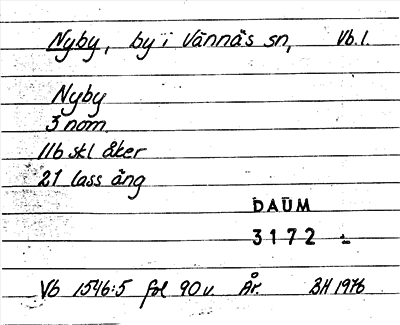 Nyby, by i Vännäs sn, Vb.l.
Nyby
3 nom.
116 skl åker
21 lass äng
DAUM
3172
Vb 1546:5 fol 90v. År. BH 1976